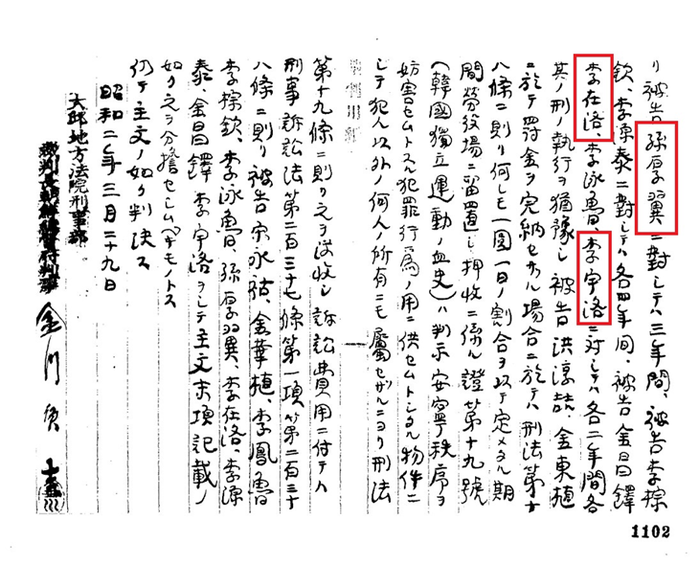 リ被告孫厚翼ニ対シテハ三年間、被告李棕
欽、李源泰ニ對シテハ各四年間、被告金昌鐸
李在洛、李泳魯、李宇洛ニ対シテハ各二年間各
其ノ刑ノ執行ヲ猶豫シ被告洪淳喆、金東植
ニ於テ罰金ヲ完納セサル場合ニ於テハ刑法第十
八條ニ則リ何レモ一圓一日ノ割合ヲ以テ定メタル期
間勞役場ニ留置シ押收ニ係ル證第十九號
(韓國獨立運動ノ血史)ハ判示安寧秩序ヲ
妨害セムトスル犯罪行爲ノ用ニ供セムトシタル物件ニ
シテ犯人以外ノ何人ノ所有ニモ屬セザルニヨリ刑法
第十九條ニ則リ之ヲ沒收シ訴訟費用ニ付テハ
刑事訴訟法第二百三十七條第一項第二百三十
八條ニ則リ被告宋永祜、金華植、李鳳魯
李棕欽、李泳魯、孫厚翼、李在洛、李源
泰、金昌鐸、李宇洛ヲシテ主文末項記載ノ
如ク之ヲ分擔セシムヘキモノトス
仍テ主文ノ如ク判決ス
昭和二年三月二十九日
大邱地方法院刑事部
裁判長朝鮮總督府判事 金川廣
1102